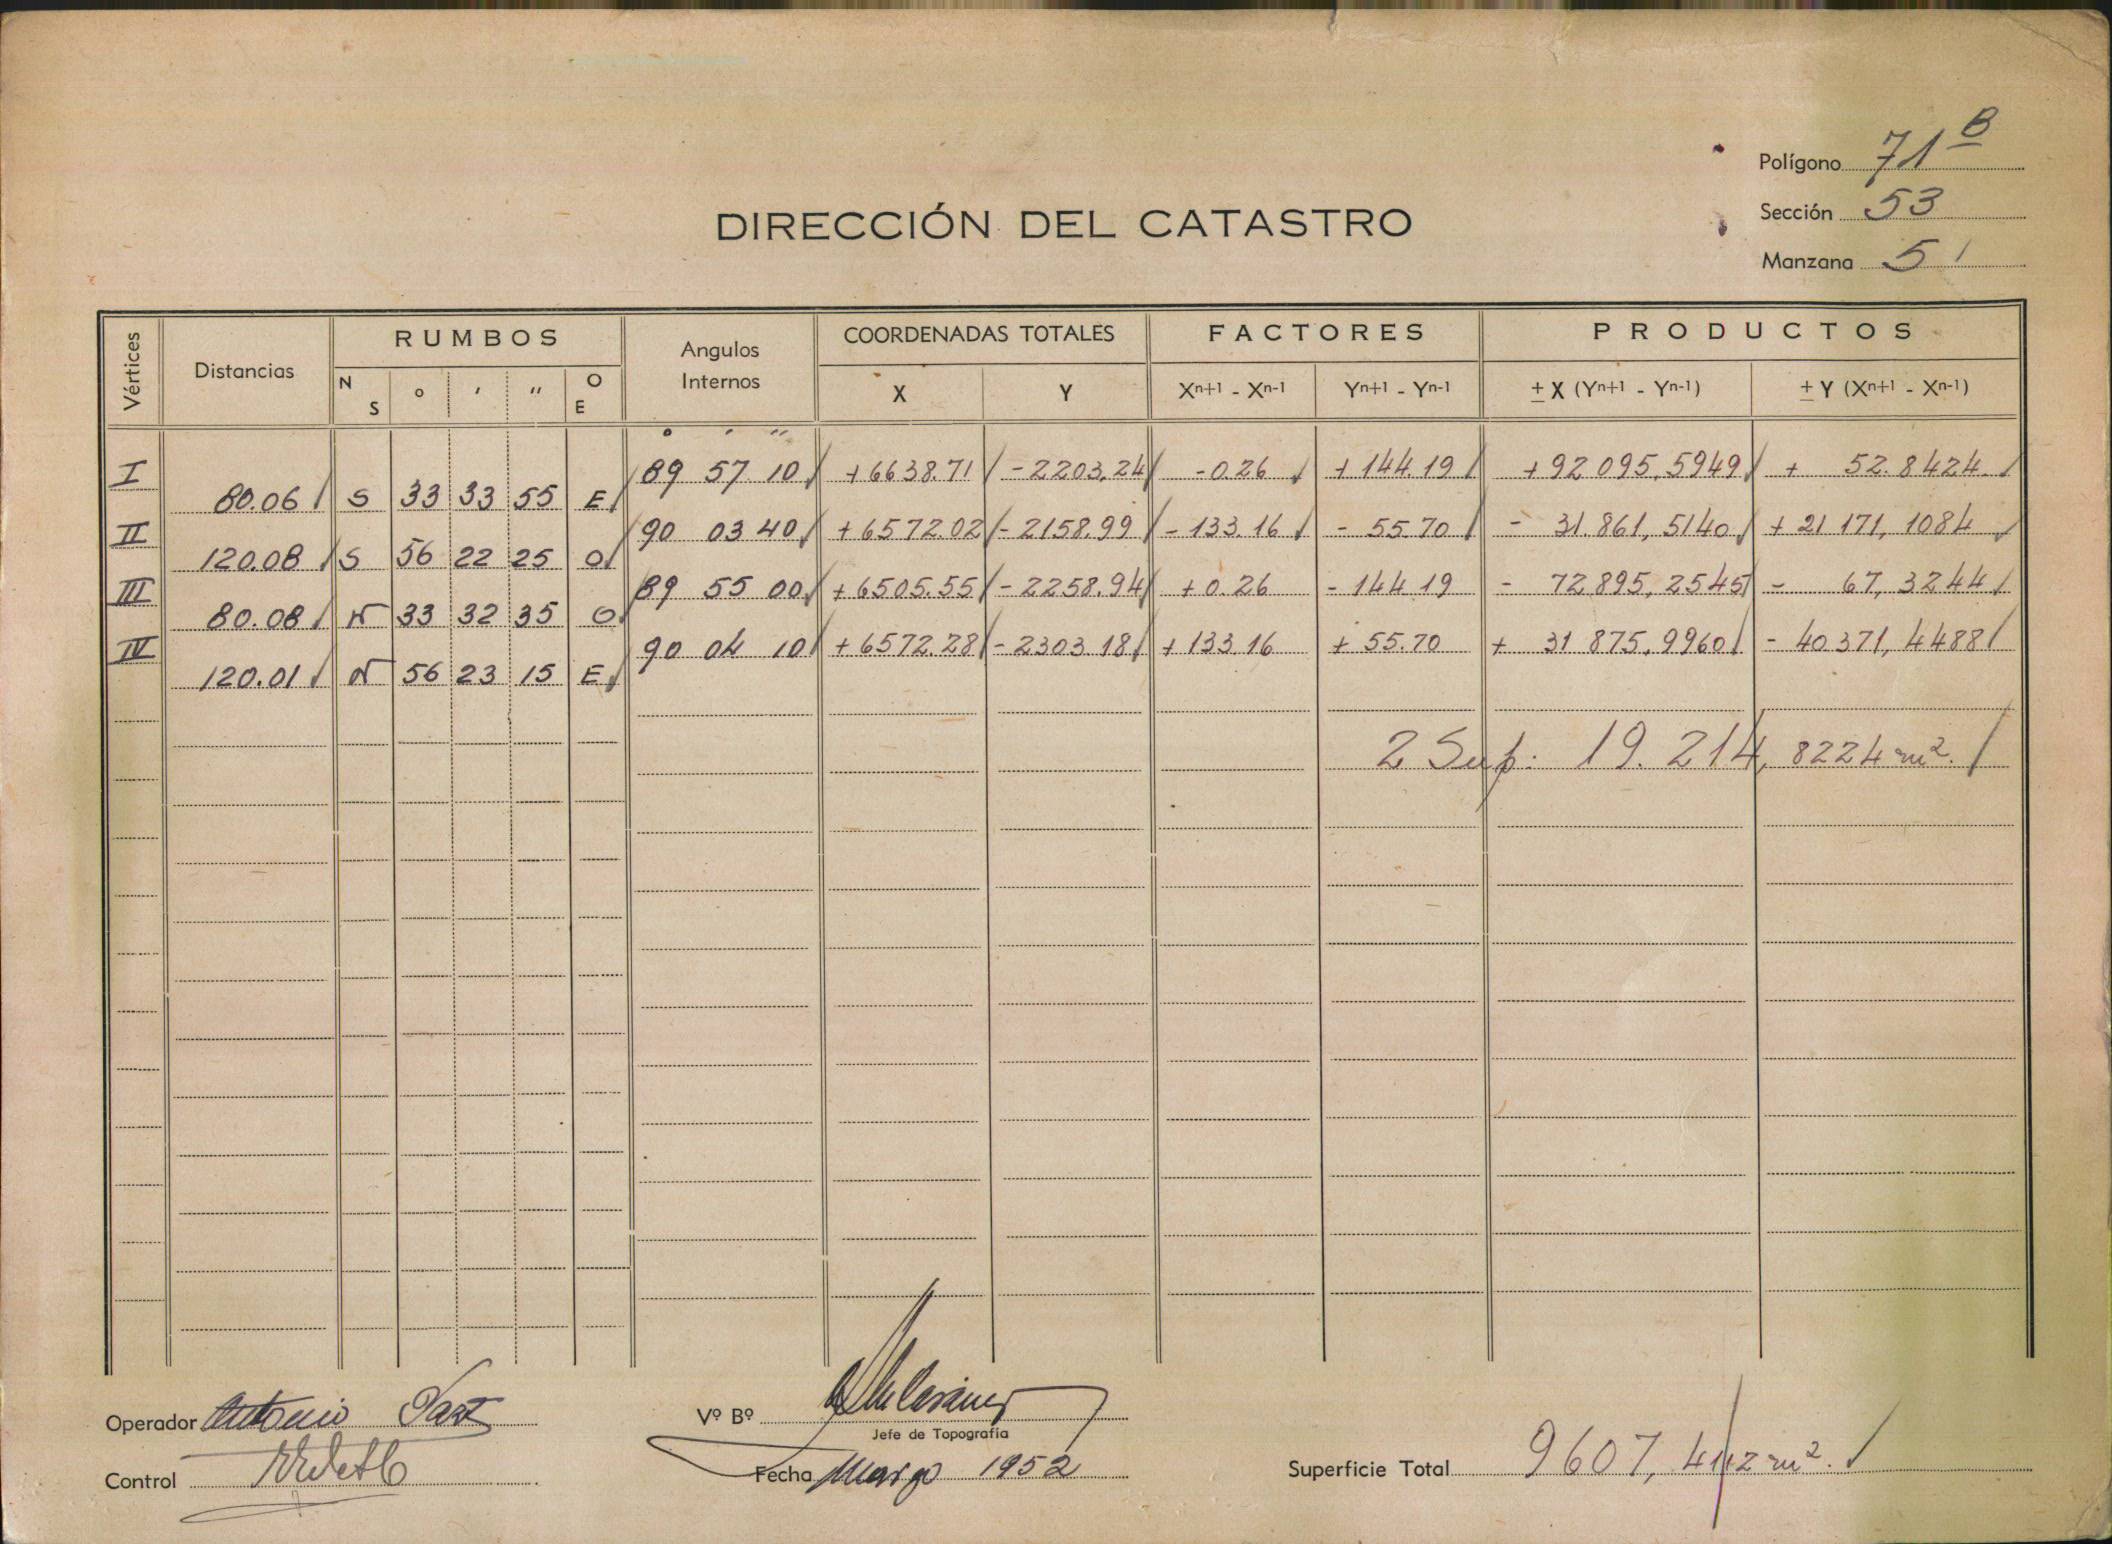 Polígono 71 B
Sección 53
Manzana 5
DIRECCIÓN DEL CATASTRO
Vértices Distancias RUMBOS Angulos Internos COORDENADAS TOTALES FACTORES PRODUCTOS
N S ° ' " O E X Y Xn+1 - Xn-1 Yn+1 - Yn-1 ± X (Yn+1 - Yn-1) ± Y (Xn+1 - Xn-1)
° ' "
I 89 57 10 +6638.71 -2203,24 -0.26 +144.19 +92 095,5949 + 52.8424
80.06 S 33 33 55 E
II 90 03 40 +6572.02 -2158.99 -133.16 - 55.70 - 31.861,5140 +21 171,1084
120.08 S 56 22 25 O
III 89 55 00 +6505.55 -2258.94 +0.26 -144 19 - 72 895,2545 - 67,3244
80.08 N 33 32 35 O
IV 90 04 10 +6572.28 -2303.18 +133.16 +55.70 + 31 875,9960 -40 371,4488
120.01 N 56 23 15 E
2 Sup: 19.214,8224 m².
Operador Antonio
Vº Bº
Jefe de Topografía
Control
Fecha Marzo 1952
Superficie Total 9607,4112 m².